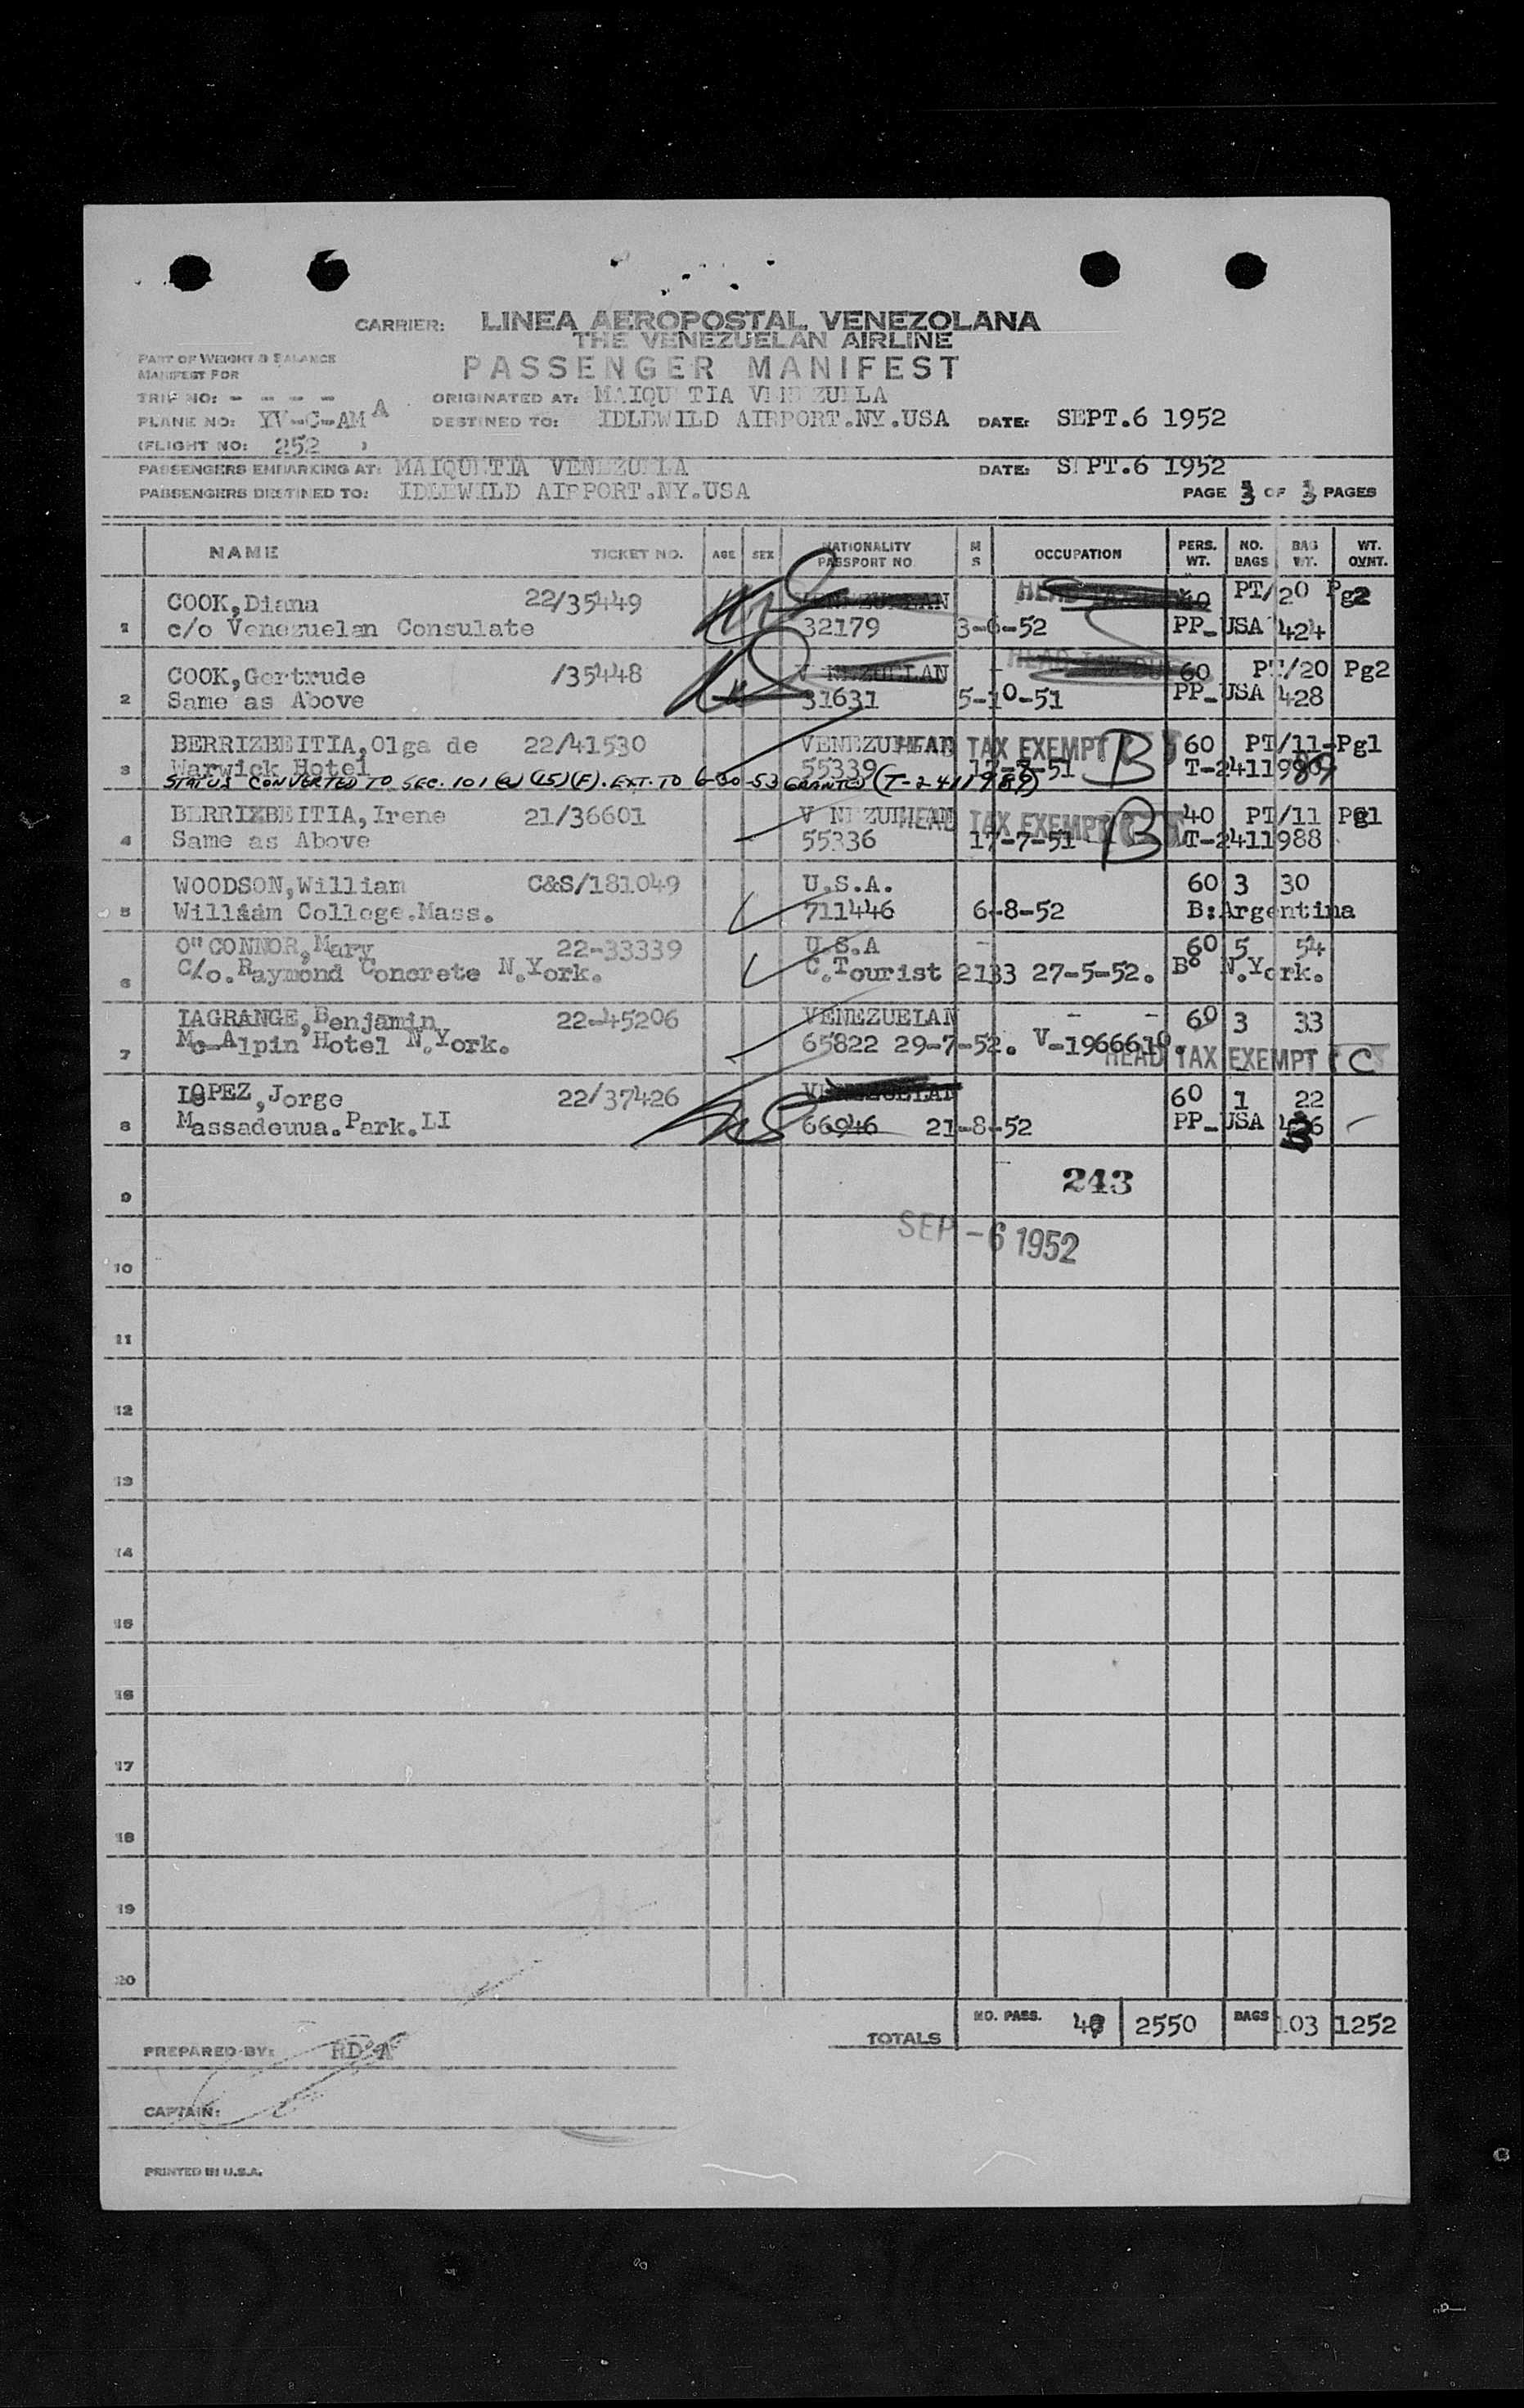 CARRIER: LINEA AEROPOSTAL VENEZOLANA
THE VENEZUELAN AIRLINE
PART OF WEIGHT & BALANCE
MANIFEST FOR
PASSENGER MANIFEST
TRIP NO: - - - -
ORIGINATED AT: MAIQUETIA VENEZUELA
PLANE NO: YV-C-AMA
DESTINED TO: IDLEWILD AIRPORT.NY.USA DATE: SEPT.6 1952
(FLIGHT NO: 252 )
PASSENGERS EMBARKING AT: MAIQUETIA VENEZUELA DATE: SEPT.6 1952
PASSENGERS DESTINED TO: IDLEWILD AIRPORT.NY.USA PAGE 3 OF 3 PAGES
NAME TICKET NO. AGE SEX NATIONALITY PASSPORT NO M S OCCUPATION PERS. WT. NO. BAGS BAG WT. WT. OVNT.
COOK,Diana 22/35449 VENEZUELAN 40 PT/20 Pg2
1 c/o Venezuelan Consulate 32179 3-6-52 PP-USA 424
COOK,Gertrude /35448 VENEZUELAN - HEAD TAX 60 PT/20 Pg2
2 Same as Above 31631 5-10-51 PP-USA 428
BERRIZBEITIA,Olga de 22/41530 VENEZUELAN HEAD TAX EXEMPT B 60 PT/11-Pg1
3 Warwick Hotel 55339 17-7-51 T-2411989
STATUS CONVERTED TO SEC. 101 (a) (15) (F). EXT. TO 6-30-53 GRANTED (T-2411989)
BERRIZBEITIA,Irene 21/36601 VENEZUELAN HEAD TAX EXEMPT B 40 PT/11 Pg1
4 Same as Above 55336 17-7-51 T-2411988
WOODSON,William C&S/181049 U.S.A. 60 3 30
5 Willáám College.Mass. 711446 6-8-52 B:Argentina
O"CONNOR,Mary 22-33339 U.S.A - 60 5 54
6 C/o.Raymond Concrete N.York. C.Tourist 2133 27-5-52. B° N.York.
LAGRANGE,Benjamin 22-45206 VENEZUELAN - - 60 3 33
7 Mc-Alpin Hotel N.York. 65822 29-7-52. V-1966610.
HEAD TAX EXEMPT C
LOPEZ,Jorge 22/37426 VENEZUELAN 60 1 22
8 Massadeuua.Park.LI 66946 21-8-52 PP-USA
9 243
SEP -6 1952
10
11
12
13
14
15
16
17
18
19
20
TOTALS NO. PASS. 2550 BAGS 103 1252
PREPARED BY:
CAPTAIN:
PRINTED IN U.S.A.